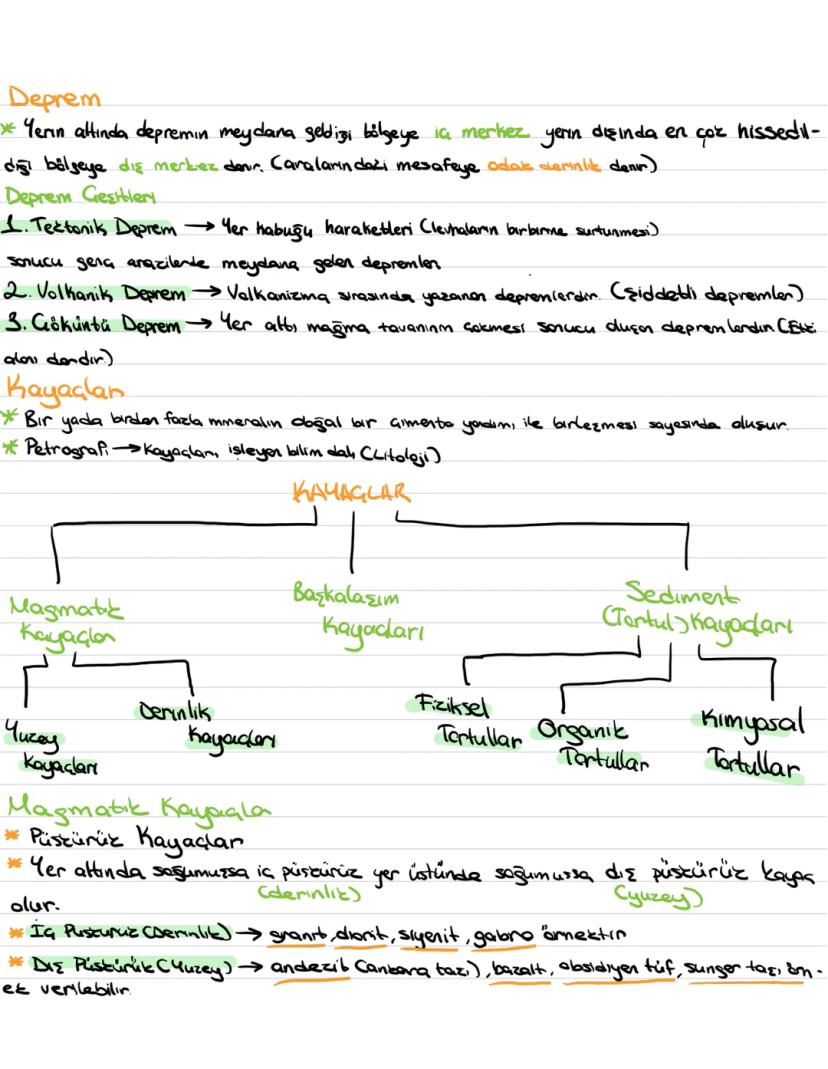 Deprem
* Yerin altında depremin meydana geldiği bölgeye iç merkez yerin dışında en çok hissedil-
diği bölgeye dış merkez denir. (aralarındaki mesafeye odak derinlik denir)
Deprem Çeşitleri
1. Tektonik Deprem → Yer kabuğu hareketleri (levhaların birbirine sürtünmesi)
sonucu genç arazilerde meydana gelen depremler
2. Volkanik Deprem → Volkanizma sırasında yaşanan depremlerdir. (şiddetli depremler)
3. Çöküntü Deprem → Yer altı mağma tavanının çökmesi sonucu oluşan depremlerdir (Etki
alanı dardır.)
Kayaçlar
* Bir yada birden fazla mineralin doğal bir çimento yardımı ile birleşmesi sayesinde oluşur.
* Petrografi → Kayaçları işleyen bilim dalı (Litoloji)
KAYAÇLAR
Magmatik
Kayaçlar
Başkalaşım
Kayaçları
Sediment
(Tortul) Kayaçları
Yüzey
Kayaçları
Derinlik
Kayaçları
Fiziksel
Tortullar
Organik
Tortullar
Kimyasal
Tortullar
Magmatik Kayaçla
* Püskürük Kayaçlar
* Yer altında soğumuşsa iç püskürük yer üstünde soğumuşsa dış püskürük kayaç
(derinlik) (yüzey)
olur.
* İç Püskürük (Derinlik) → granit, diorit, siyenit, gabro örnektir
* Dış Püskürük (Yüzey) → andezit (ankara taşı), bazalt, obsidiyen tüf, sünger taşı örn-
ek verilebilir.